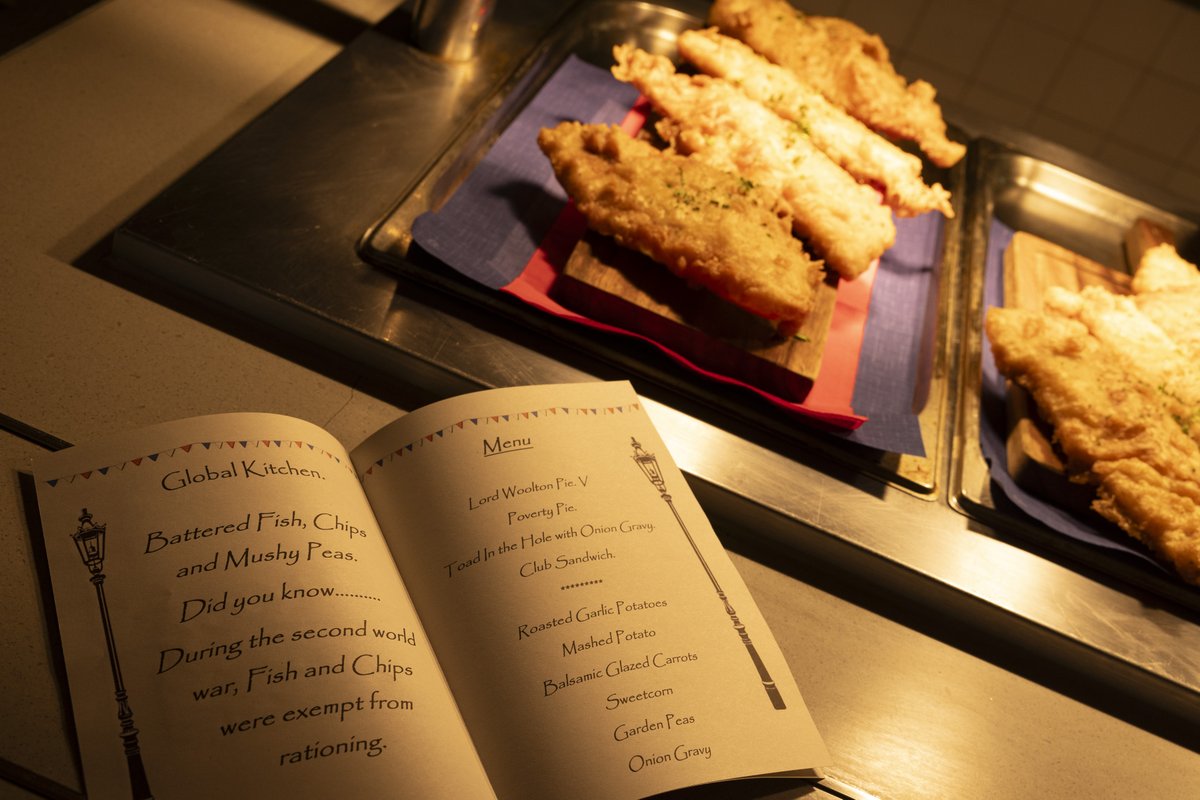 Global Kitchen.
Battered Fish, Chips
and Mushy Peas.
Did you know..........
During the second world
war, Fish and Chips
were exempt from
rationing.
Menu
Lord Woolton Pie. V
Poverty Pie.
Toad In the Hole with Onion Gravy.
Club Sandwich.
*********
Roasted Garlic Potatoes
Mashed Potato
Balsamic Glazed Carrots
Sweetcorn
Garden Peas
Onion Gravy